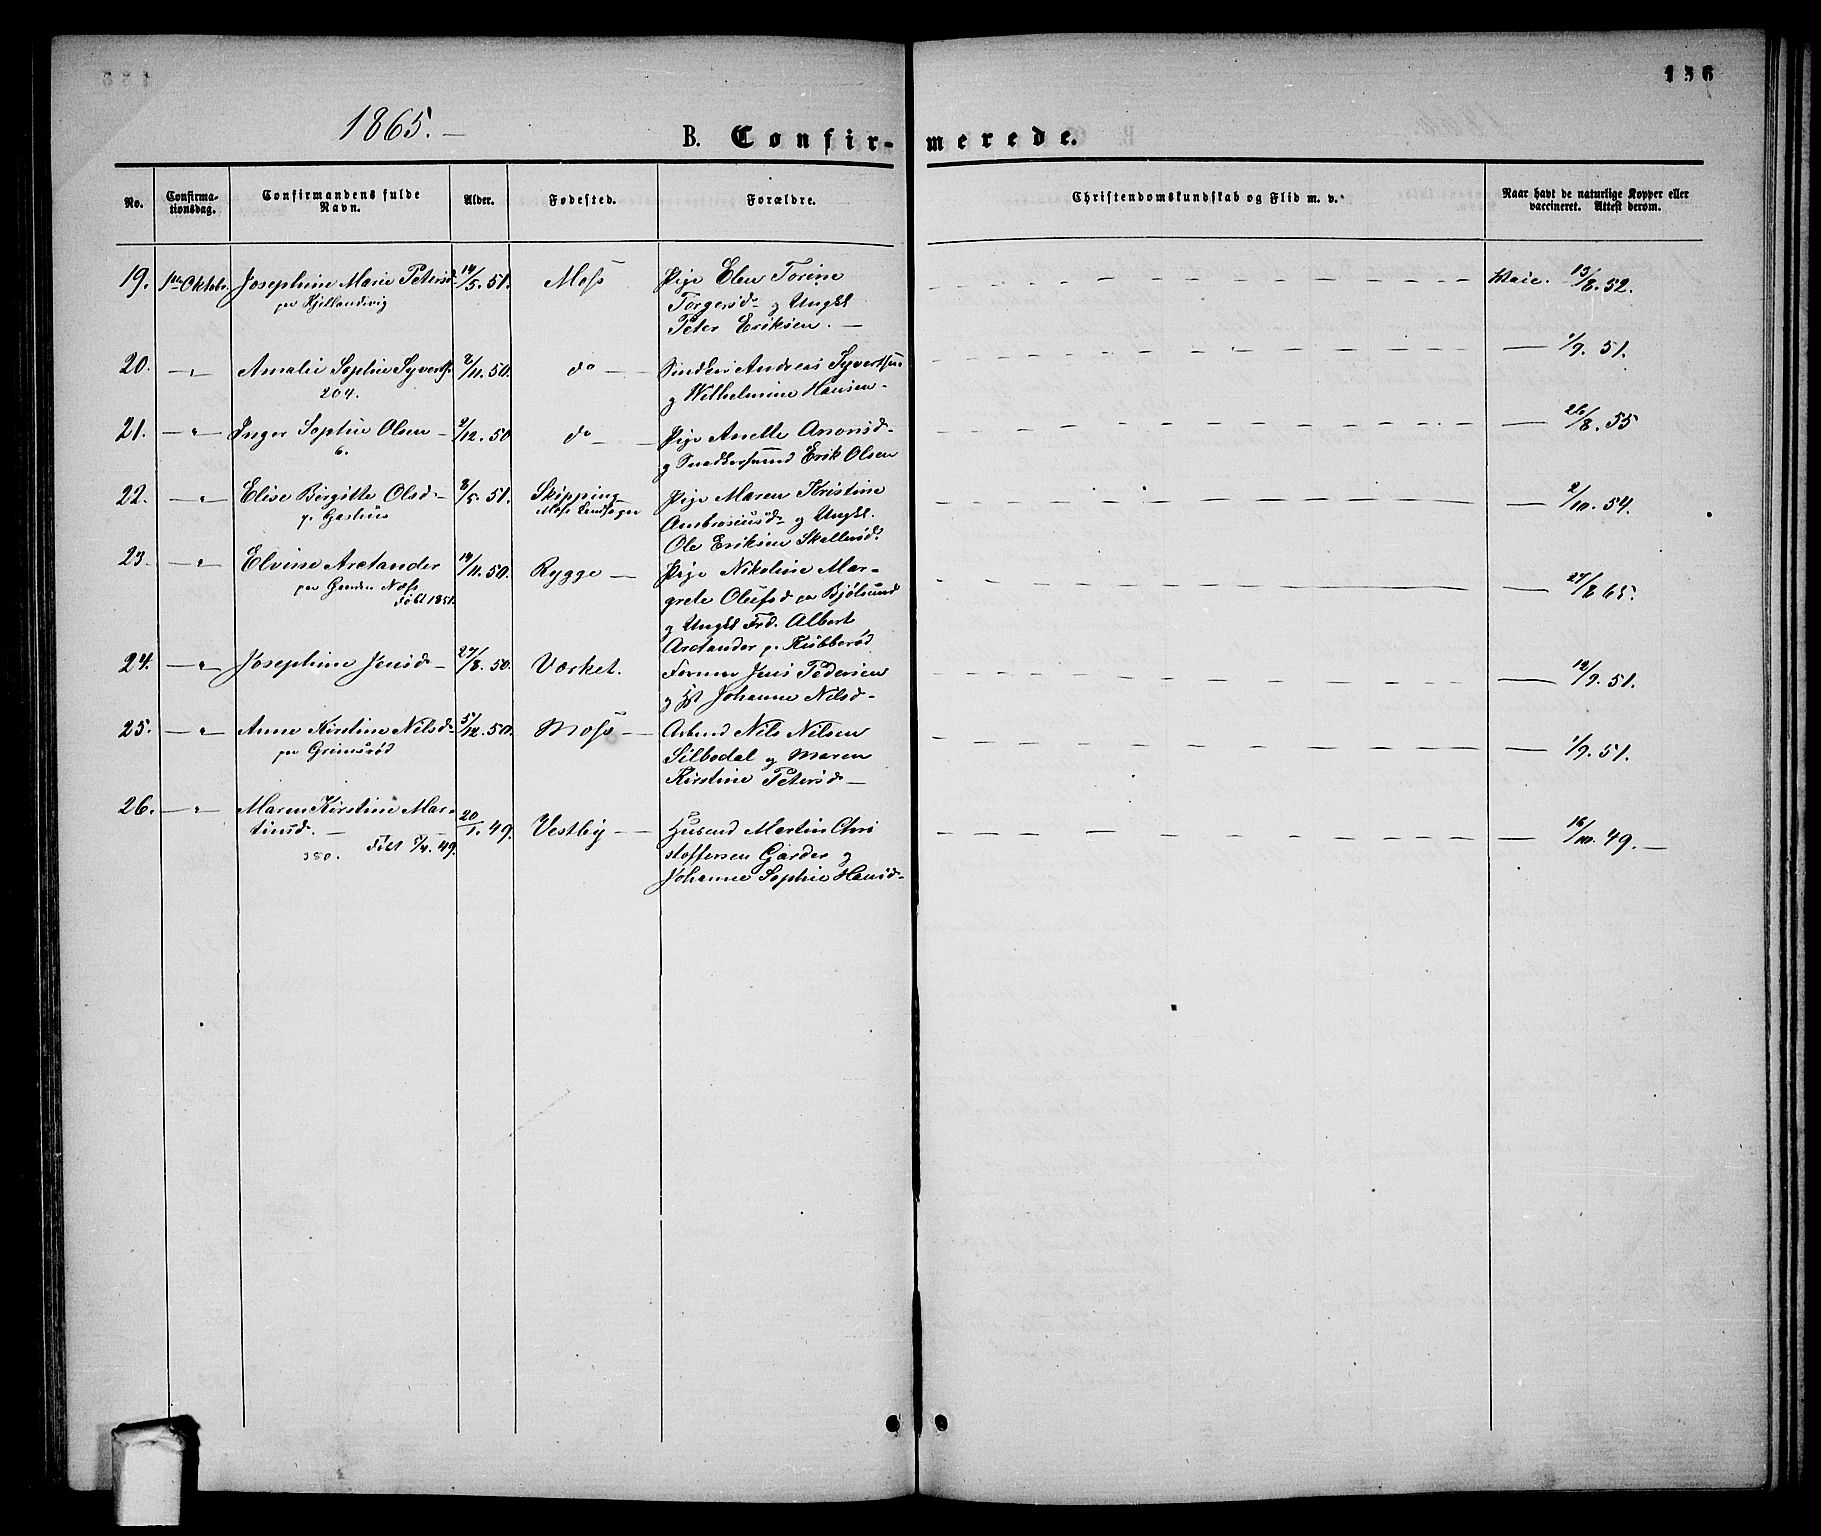 136
1865.
B. Confirmerede.
No.
Confirma-
tionsdag.
Confirmandens fulde
Navn.
Alder.
Fødested.
Forældre.
Christendomskundskab og Flid m. v.
Naar havt de naturlige Kopper eller
vaccineret. Attest derom.
19. 1ste Oktobr. Josephine Marie Petersd. 14/5. 51. Moss Pige Elen Torine 13/8. 52.
Torgersd. og Ungkl
Peter Eriksen. —
20. — " Amalie Sophie Syverts. 2/11. 50. do — Andreas Syvertsen — 1/9. 51.
204. og Wilhelmine Hansen —
21. — " Inger Sophie Olsen — 2/12. 50 do — Pige Anette Aronsd — 26/8. 55
6. og Snedkersvend Erik Olsen
22. — " Elise Birgitte Olsd — 8/5. 51. Skipping Pige Maren Kristine — 2/10. 54.
Moss Landsogn
Ambrosiusd og Ungkl.
Ole Eriksen Skallerød.
23. — " Elvine Arctander 14/11. 50. Rygge — Pige Nikoline Mar- — 27/8 65.
Født 1851.
grete Olefsd paa Bjølsund
og Ungkl Frd. Albert
Arctander p. Kubberød
24. — " Josephine Jensd — 27/8. 50. Værket. Former Jens Pedersen — 12/9. 51.
og Hst Johanne Nilsd —
25. — " Anne Kirstine Nilsd — 5/12. 50. Moss — Arbmd Nils Nilsen — 1/9. 51.
paa Grimsrød Silbodal og Maren
Kirstine Petersd —
26. — " Maren Kirstine Mar- 20/1. 49. Vestby — Husmd Martin Chri — 16/10. 49. —
tinsd. — stoffersen Garder og
380. Johanne Sophie Hansd —